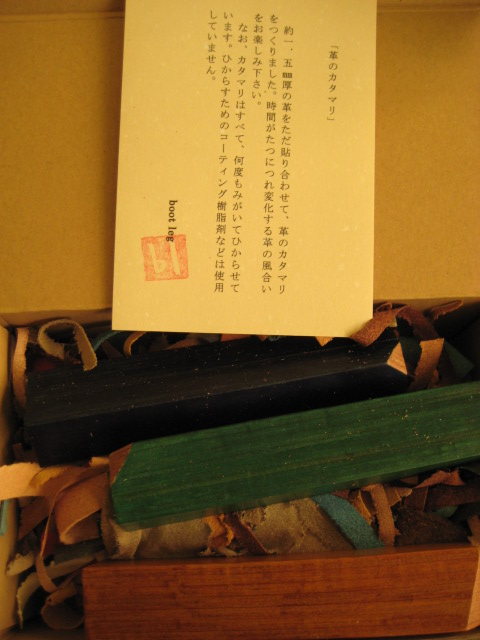 「革のカタマリ」
約一、五㎜厚の革をただ貼り合わせて、革のカタマリ
をつくりました。時間がたつにつれ変化する革の風合い
をお楽しみ下さい。
なお、カタマリはすべて、何度もみがいてひからせて
います。ひからすためのコーティング樹脂剤などは使用
していません。
boot leg
bl